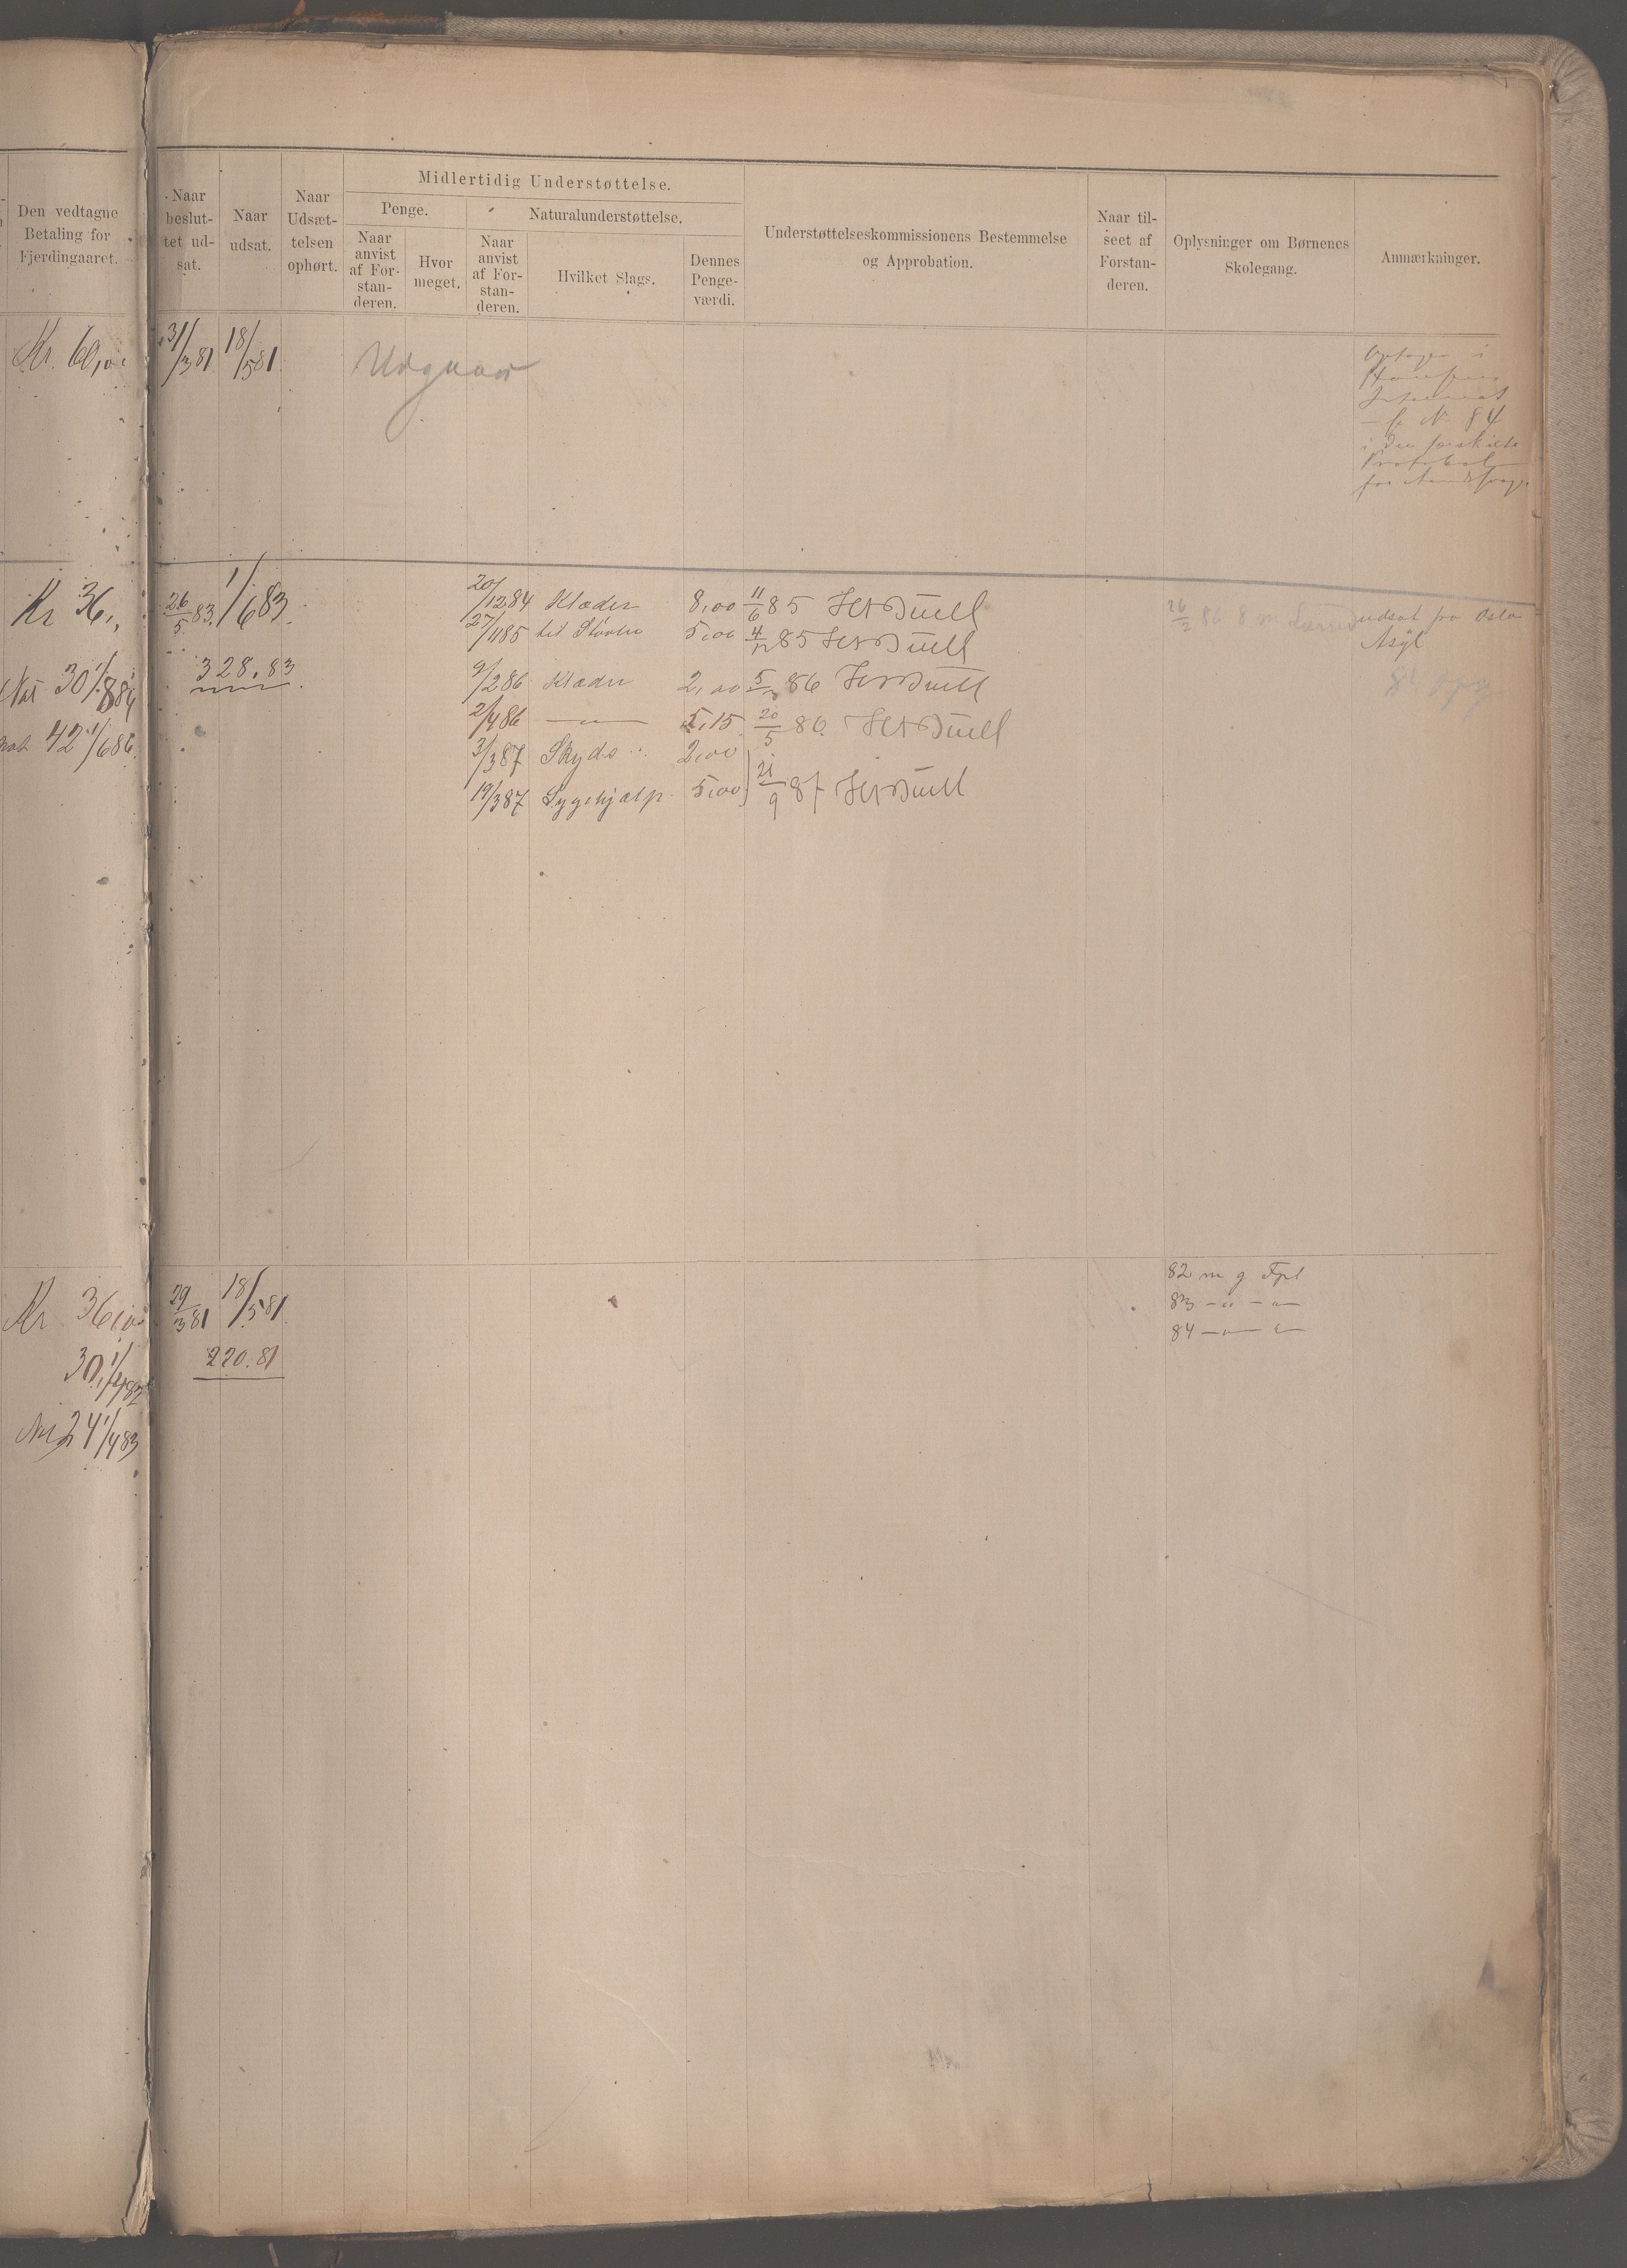 Den vedtagne
Betaling for
Fjerdingaaret.
Naar
beslut-
tet ud-
sat.
Naar
udsat.
Naar
Udsæt-
telsen
ophørt.
Midlertidig Understøttelse.
Penge.
Naturalunderstøttelse.
Naar
anvist
af For-
stan-
deren.
Hvor
meget.
Naar
anvist
af For-
stan-
deren.
Hvilket Slags.
Dennes
Penge-
værdi.
Understøttelseskommissionens Bestemmelse
og Approbation.
Naar til-
seet af
Forstan-
deren.
Oplysninger om Børnenes
Skolegang.
Anmærkninger.
Kr. 60,00 31/3 81 18/5 81
Udgaar
i
No 84
i den særskilte
Protokol
for
Kr 36,, 26/5 83. 1/6 83.
328.83
30 1/8 84
42 1/6 86
20/12 84 Klæder 8,00 11/6 85
27/11 85 til Støvler 5,00 4/12 85
9/2 86 Klæder 2,00 5/ 86
2/4 86 —"— 5,15 20/5 86
3/3 87 Skyds 2,00
19/3 87 Sygehjælp 5,00 21/9 87
26/2 86 8 m udsat fra Oslo
Asyl
Kr 36,00 29/3 81 18/5 81
220.81
30, 1/4 82
24 1/4 83
82 m g Fpl
83 —"— —"—
84 —"— "—